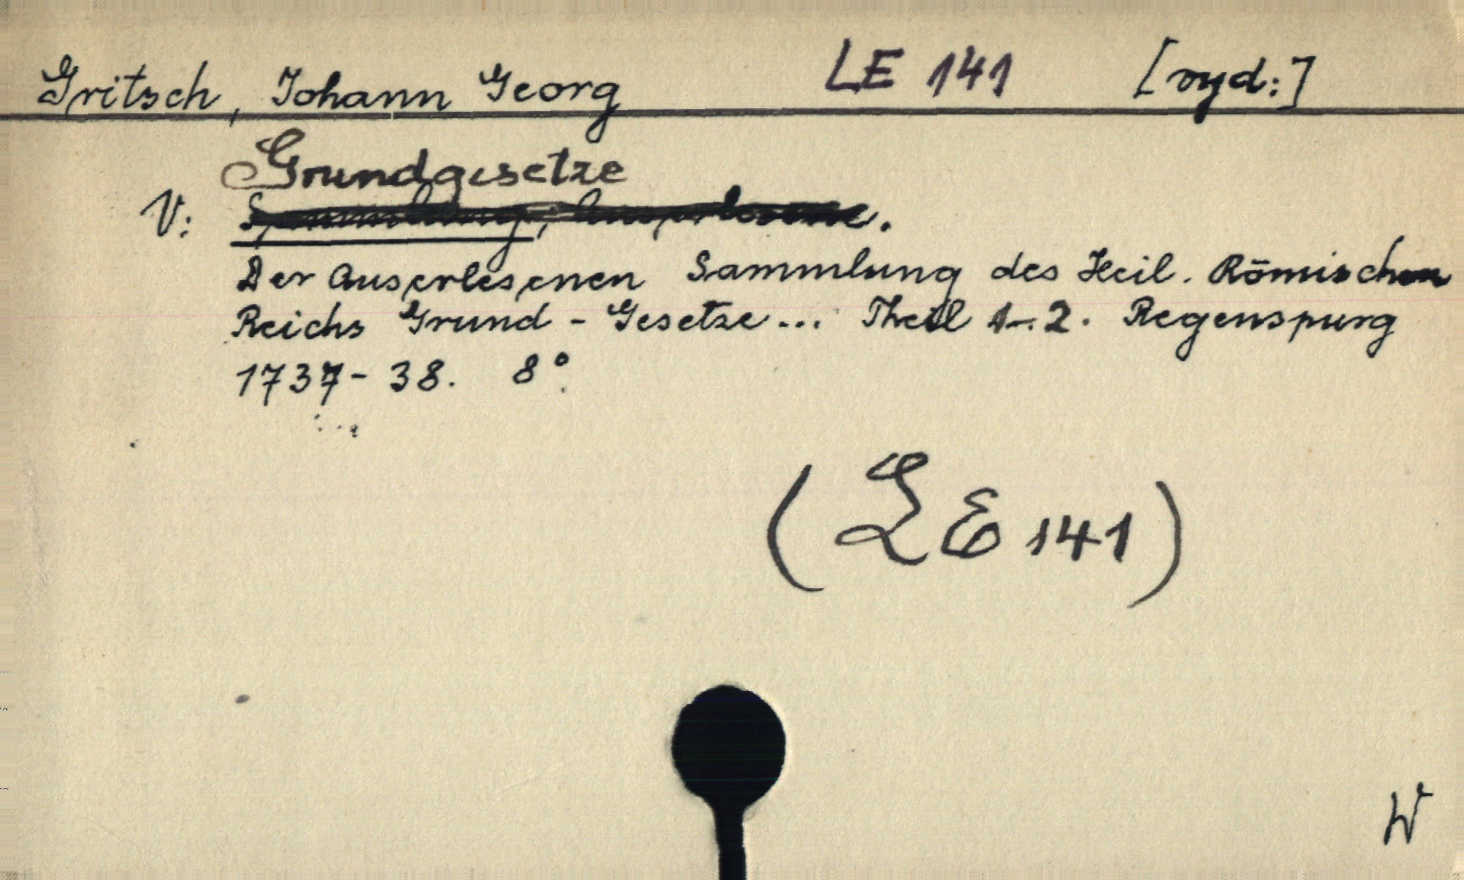 Gritsch, Johann Georg LE 141 [wyd:]
Grundgesetze
V: Sammlung, Auserlesene.
Der Auserlesenen Sammlung des Heil. Römischen
Reichs Grund-Gesetze... Theil 1-2. Regenspurg
1737-38. 8°
(LE 141)
W